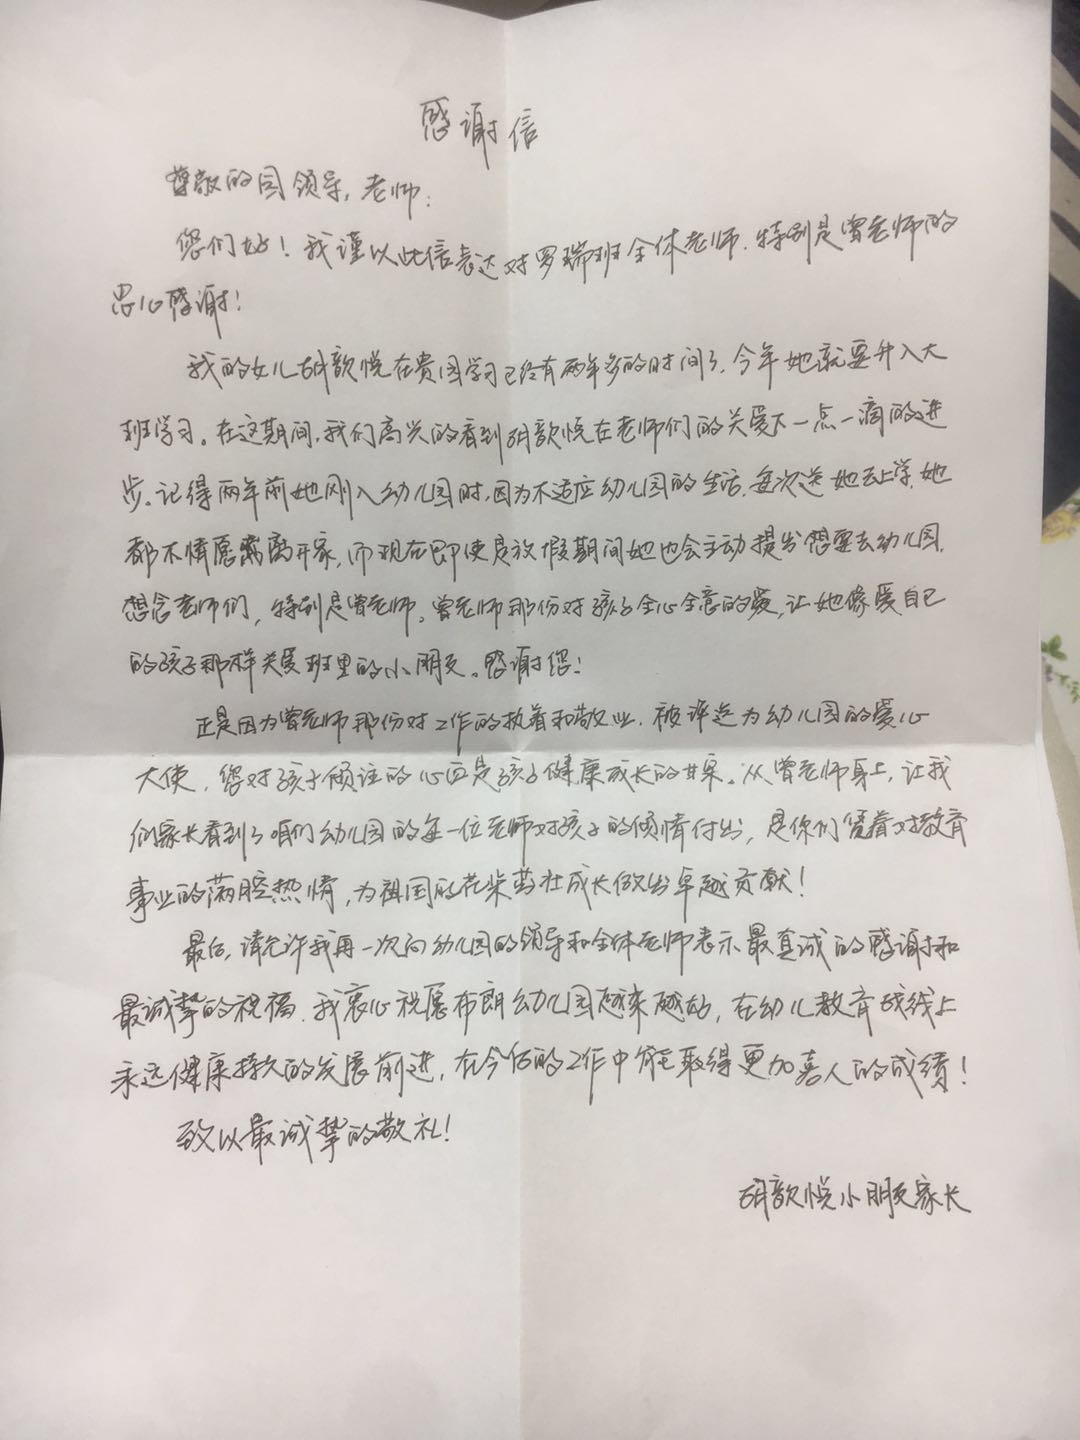 感谢信
尊敬的园领导,老师:
您们好!我谨以此信表达对罗瑞班全体老师,特别是曾老师的
忠心感谢!
我的女儿胡歆悦在贵园学习已经有两年多的时间了,今年她就要升入大
班学习。在这期间,我们高兴的看到胡歆悦在老师们的关爱下一点一滴的进
步。记得两年前她刚入幼儿园时,因为不适应幼儿园的生活,每次送她去上学,她
都不情愿离开家,而现在即使是放假期间她也会主动提出想要去幼儿园,
想念老师们,特别是曾老师。曾老师那份对孩子全心全意的爱,让她像爱自己
的孩子那样关爱班里的小朋友。感谢您!
正是因为曾老师那份对工作的执着和敬业,被评选为幼儿园的爱心
大使,您对孩子倾注的心血是孩子健康成长的甘果。从曾老师身上,让我
们家长看到了咱们幼儿园的每一位老师对孩子的倾情付出,是你们凭着对教育
事业的满腔热情,为祖国的花朵茁壮成长做出卓越贡献!
最后,请允许我再一次向幼儿园的领导和全体老师表示最真诚的感谢和
最诚挚的祝福,我衷心祝愿布朗幼儿园越来越好,在幼儿教育战线上
永远健康持久的发展前进,在今后的工作中能取得更加喜人的成绩!
致以最诚挚的敬礼!
胡歆悦小朋友家长